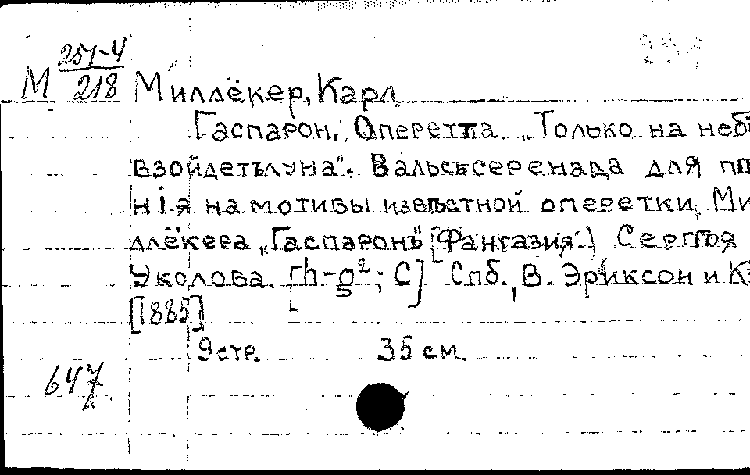 М 251-4
218
Миллёкер, Карл
Гаспарон. Оперетта. „Только на неб
взойдетъ луна". Вальсъ серенада для п
нія на мотивы извѣстной оперетки Ми
ллёкера „Гаспаронъ" [Фантазия.] Сергѣя
Уколова. [h-g²; C] Спб., В. Эриксон и К
[1885]
9 стр. 35 см.
647